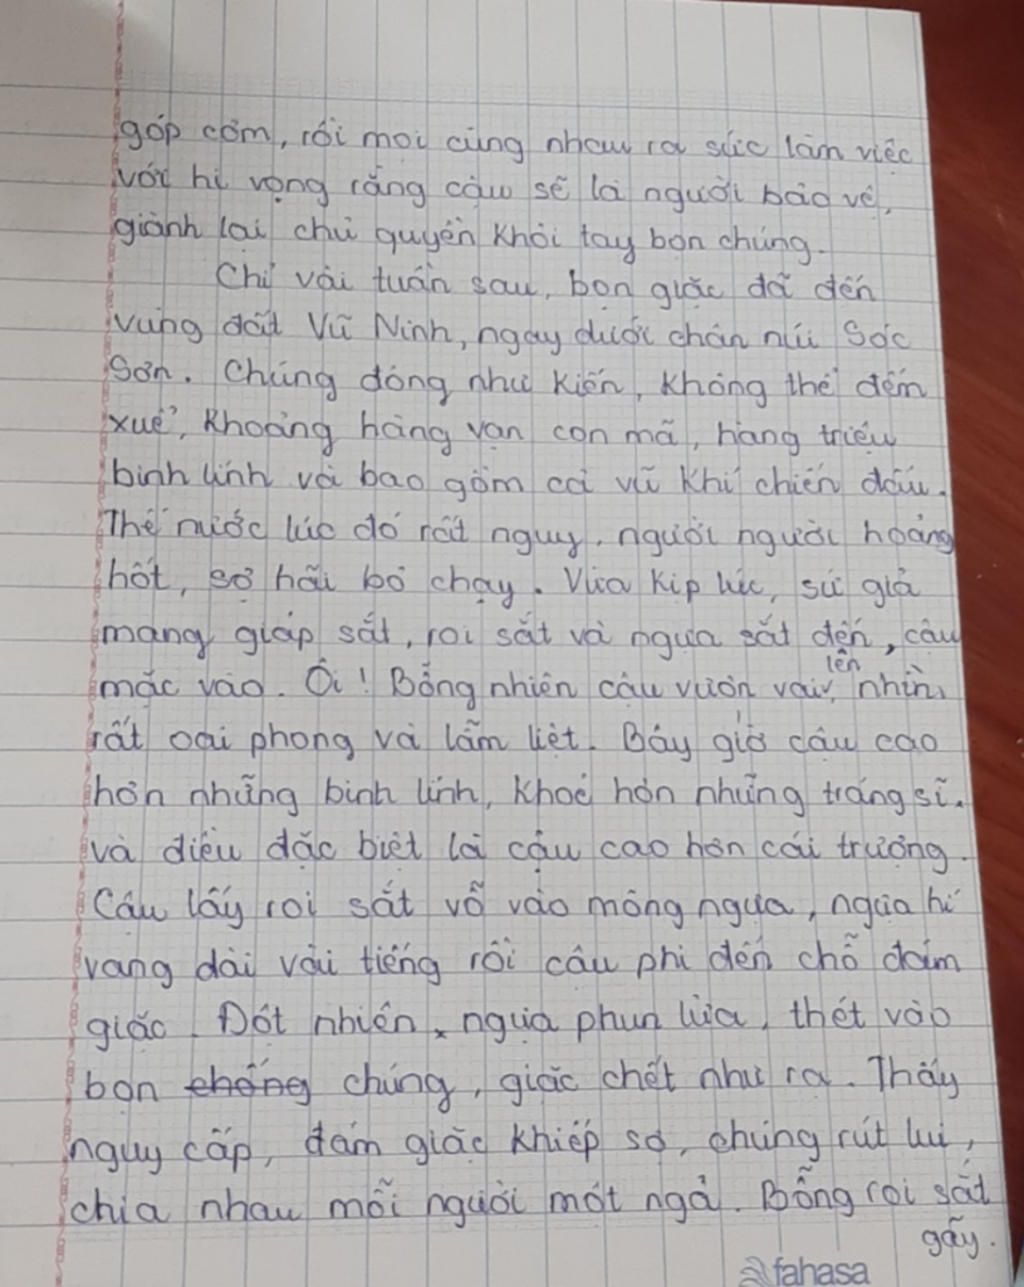 góp cơm, rồi mọi cùng nhau ra sức làm việc
với hi vọng rằng cậu sẽ là người bảo vệ,
giành lại chủ quyền khỏi tay bọn chúng.
Chỉ vài tuần sau, bọn giặc đã đến
vùng đất Vũ Ninh, ngay dưới chân núi Sóc
Sơn. Chúng đông như kiến, không thể đếm
xuể, khoảng hàng vạn con mã, hàng triệu
binh lính và bao gồm cả vũ khí chiến đấu.
Thế nước lúc đó rất nguy, người người hoảng
hốt, sợ hãi bỏ chạy. Vừa kịp lúc, sứ giả
mang giáp sắt, roi sắt và ngựa sắt đến, cậu
mặc vào. Ôi! Bỗng nhiên cậu vươn vai lên, nhìn
rất oai phong và lẫm liệt. Bây giờ cậu cao
hơn những binh lính, khoẻ hơn những tráng sĩ.
và điều đặc biệt là cậu cao hơn cái trượng.
Cậu lấy roi sắt vỗ vào mông ngựa, ngựa hí
vang dài vài tiếng rồi cậu phi đến chỗ đám
giặc. Đột nhiên, ngựa phun lửa, thét vào
bọn chống chúng, giặc chết như rạ. Thấy
nguy cấp, đám giặc khiếp sợ, chúng rút lui,
chia nhau mỗi người một ngả. Bỗng roi sắt
gãy.
fahasa